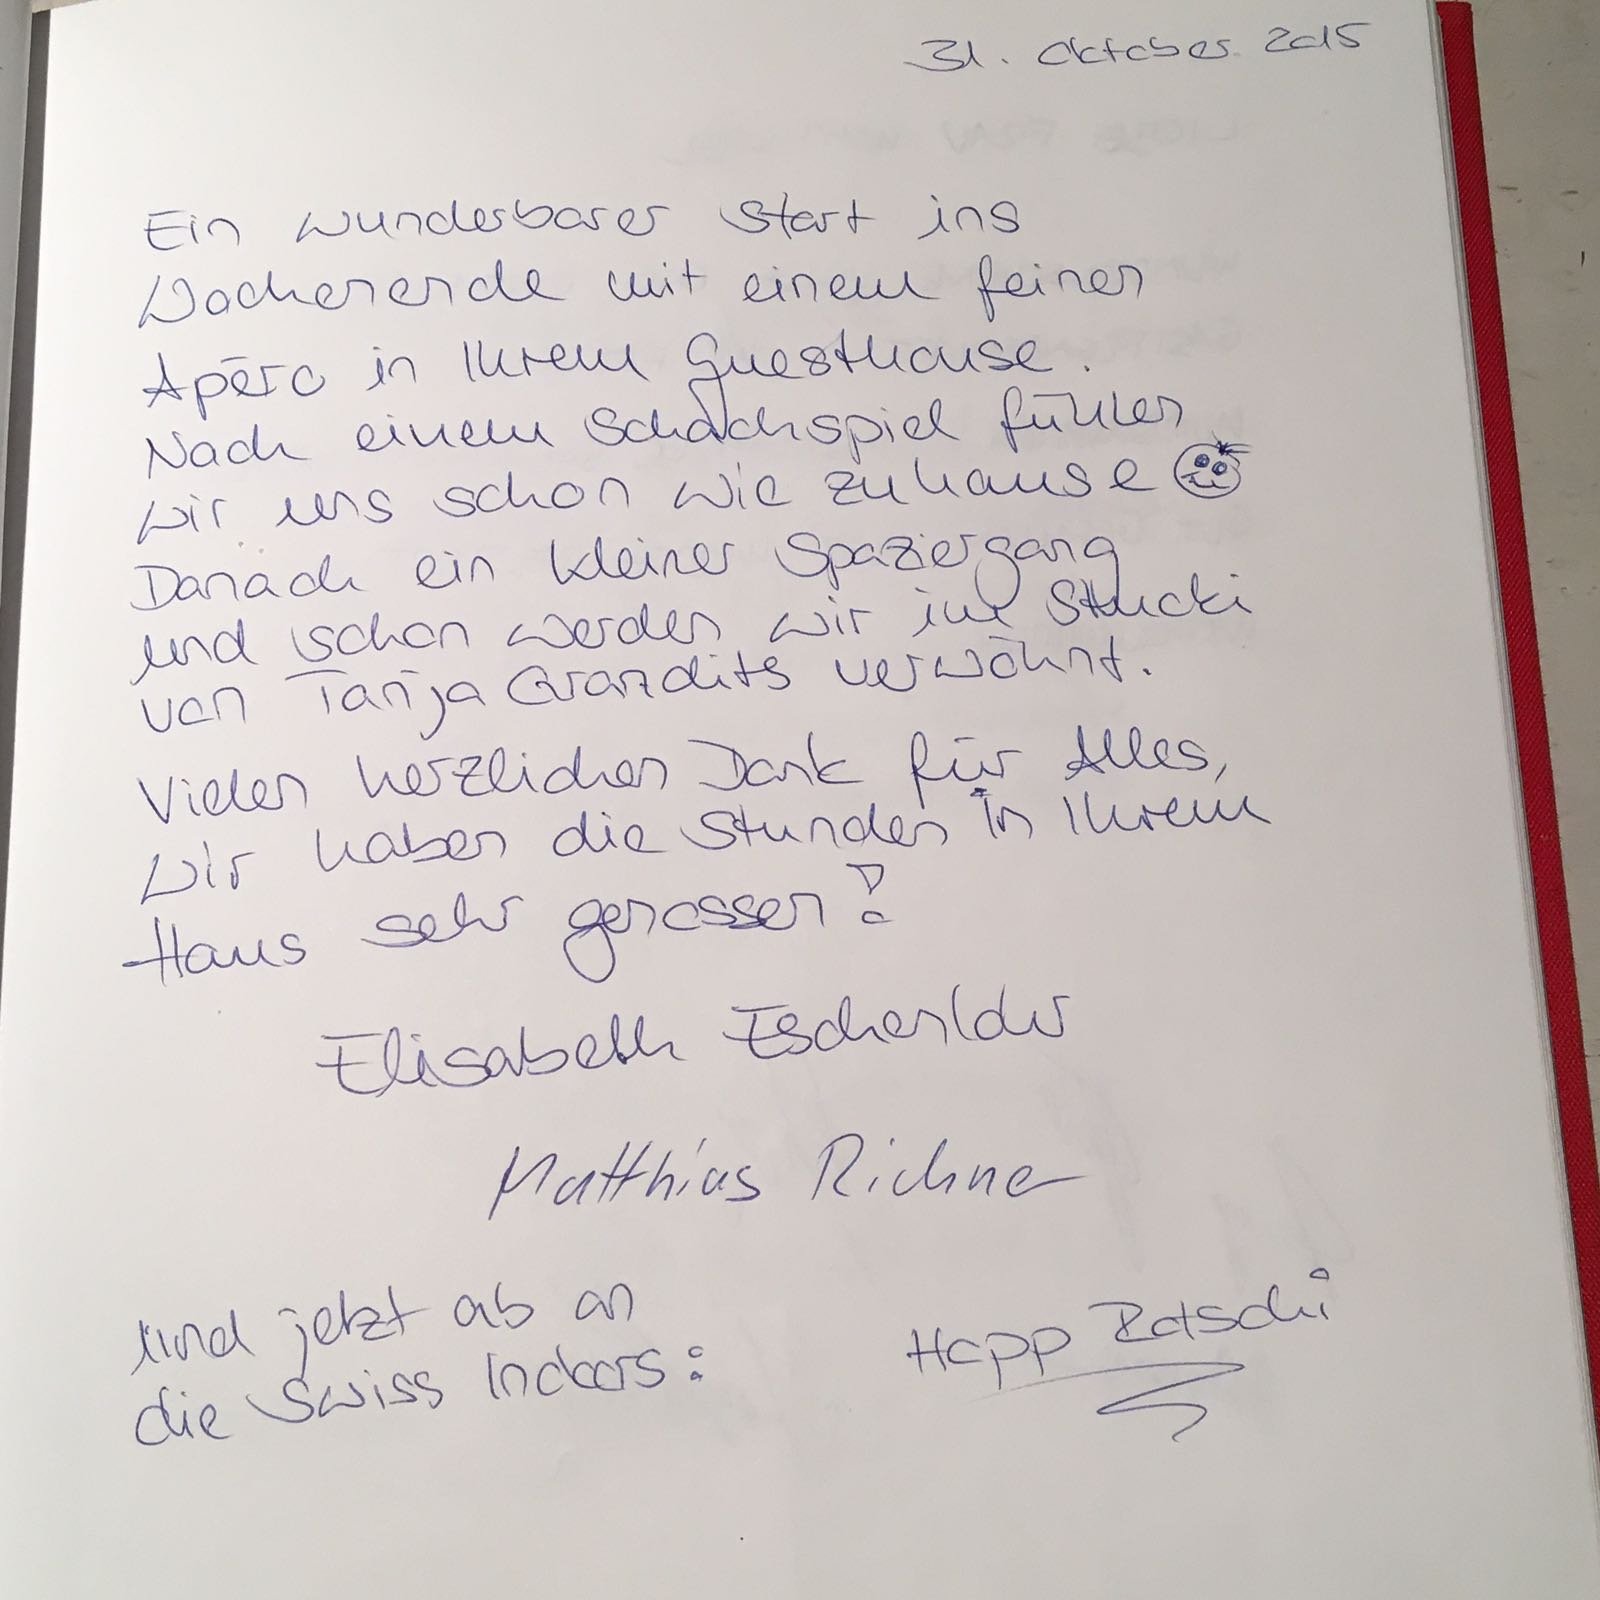 31. Oktober 2015
Ein wunderbarer Start ins
Wochenende mit einem feinen
Apéro in Ihrem Guesthouse.
Nach einem Schachspiel fühlen
wir uns schon wie zuhause
Danach ein kleiner Spaziergang
und schon werden wir im Stucki
von Tanja Grandits verwöhnt.
Vielen herzlichen Dank für Alles,
wir haben die Stunden in Ihrem
Haus sehr genossen!
Elisabeth
Matthias Richner
und jetzt ab an
die Swiss Indoors:
Hopp